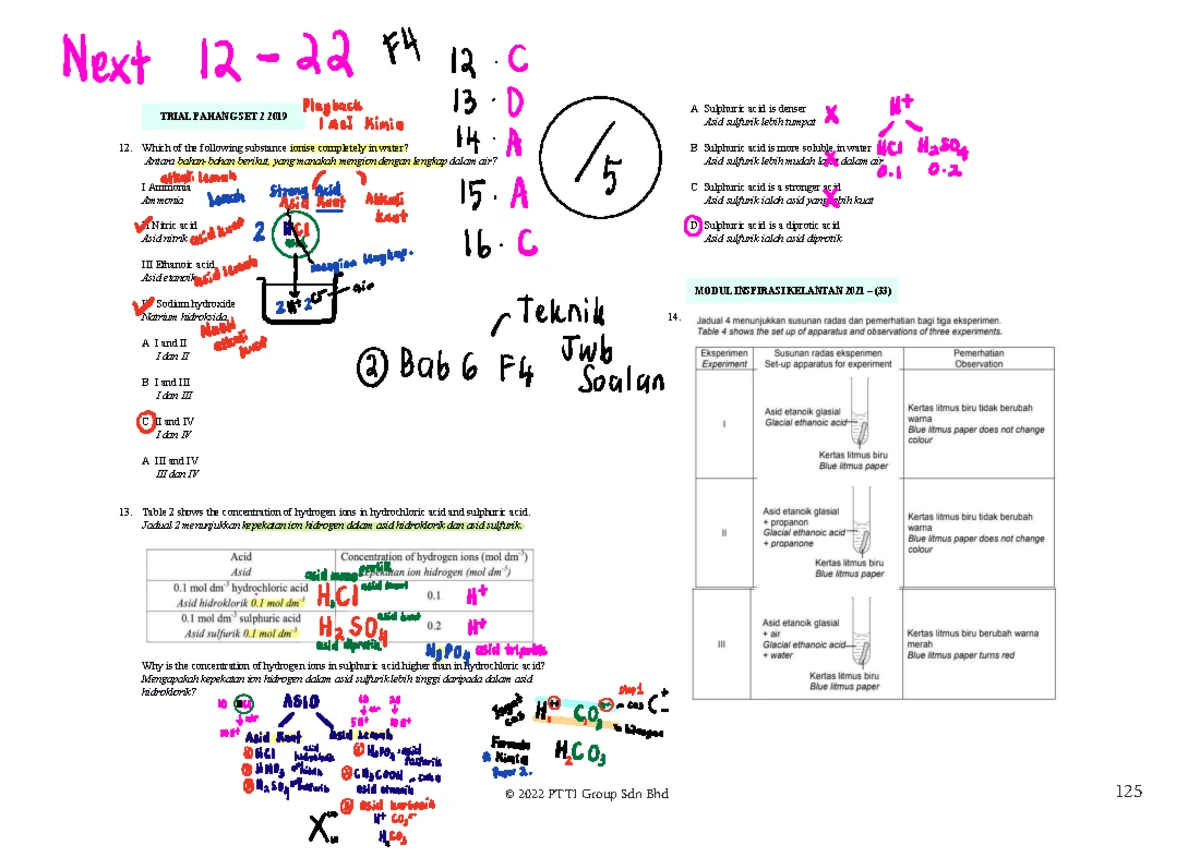 Next 12 - 22 F4
12 . C
13 . D
14 . A
15 . A
16 . C
/5
TRIAL PAHANG SET 2 2019
Playback
1 mei Kimia
12. Which of the following substance ionise completely in water?
Antara bahan-bahan berikut, yang manakah mengion dengan lengkap dalam air?
alkali lemah
I Ammonia
Ammonia
lemah
Strong Acid
Asid Kuat
Alkali
kuat
II Nitric acid
Asid nitrik
asid kuat
2 HCl
mengion lengkap.
III Ethanoic acid
Asid etanoik
asid lemah
air
2 H+ 2 Cl-
IV Sodium hydroxide
Natrium hidroksida
alkali
kuat
A I and II
I dan II
B I and III
I dan III
C II and IV
I dan IV
A III and IV
III dan IV
② Bab 6 F4
Teknik
Jwb
Soalan
13. Table 2 shows the concentration of hydrogen ions in hydrochloric acid and sulphuric acid.
Jadual 2 menunjukkan kepekatan ion hidrogen dalam asid hidroklorik dan asid sulfurik.
Acid
Asid
Concentration of hydrogen ions (mol dm-3)
Kepekatan ion hidrogen (mol dm-3)
0.1 mol dm-3 hydrochloric acid
Asid hidroklorik 0.1 mol dm-3
HCl
asid kuat
0.1 H+
0.1 mol dm-3 sulphuric acid
Asid sulfurik 0.1 mol dm-3
H2SO4
asid kuat
asid diprotik
0.2 H+
H3PO4 asid triprotik
Why is the concentration of hydrogen ions in sulphuric acid higher than in hydrochloric acid?
Mengapakah kepekatan ion hidrogen dalam asid sulfurik lebih tinggi daripada dalam asid
hidroklorik?
ASID
Asid Kuat
Asid Lemah
HCl
HNO3
H2SO4
H3PO4
CH3COOH
asid etanoik
asid karbonik
H+ CO3 2-
H2CO3
Step 1
H+ CO3 2-
Formula
Kimia
Paper 2.
H2CO3
A Sulphuric acid is denser
Asid sulfurik lebih tumpat
B Sulphuric acid is more soluble in water
Asid sulfurik lebih mudah larut dalam air
C Sulphuric acid is a stronger acid
Asid sulfurik ialah asid yang lebih kuat
D Sulphuric acid is a diprotic acid
Asid sulfurik ialah asid diprotik
H+
HCl H2SO4
0.1 0.2
MODUL INSPIRASI KELANTAN 2021 – (33)
14. Jadual 4 menunjukkan susunan radas dan pemerhatian bagi tiga eksperimen.
Table 4 shows the set up of apparatus and observations of three experiments.
Eksperimen
Experiment
Susunan radas eksperimen
Set-up apparatus for experiment
Pemerhatian
Observation
I
Asid etanoik glasial
Glacial ethanoic acid
Kertas litmus biru
Blue litmus paper
Kertas litmus biru tidak berubah
warna
Blue litmus paper does not change
colour
II
Asid etanoik glasial
+ propanon
Glacial ethanoic acid
+ propanone
Kertas litmus biru
Blue litmus paper
Kertas litmus biru tidak berubah
warna
Blue litmus paper does not change
colour
III
Asid etanoik glasial
+ air
Glacial ethanoic acid
+ water
Kertas litmus biru
Blue litmus paper
Kertas litmus biru berubah warna
merah
Blue litmus paper turns red
© 2022 PTTI Group Sdn Bhd
125